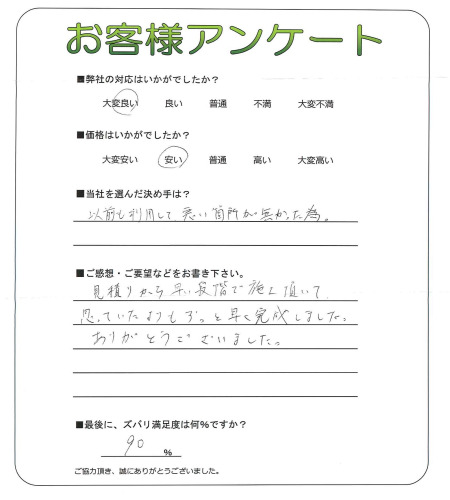 お客様アンケート
■弊社の対応はいかがでしたか?
大変良い 良い 普通 不満 大変不満
■価格はいかがでしたか?
大変安い 安い 普通 高い 大変高い
■当社を選んだ決め手は?
以前も利用して悪い箇所が無かった為。
■ご感想・ご要望などをお書き下さい。
見積りから早い段階で施工頂いて、
思っていたよりもずっと早く完成しました。
ありがとうございました。
■最後に、ズバリ満足度は何%ですか?
90 %
ご協力頂き、誠にありがとうございました。